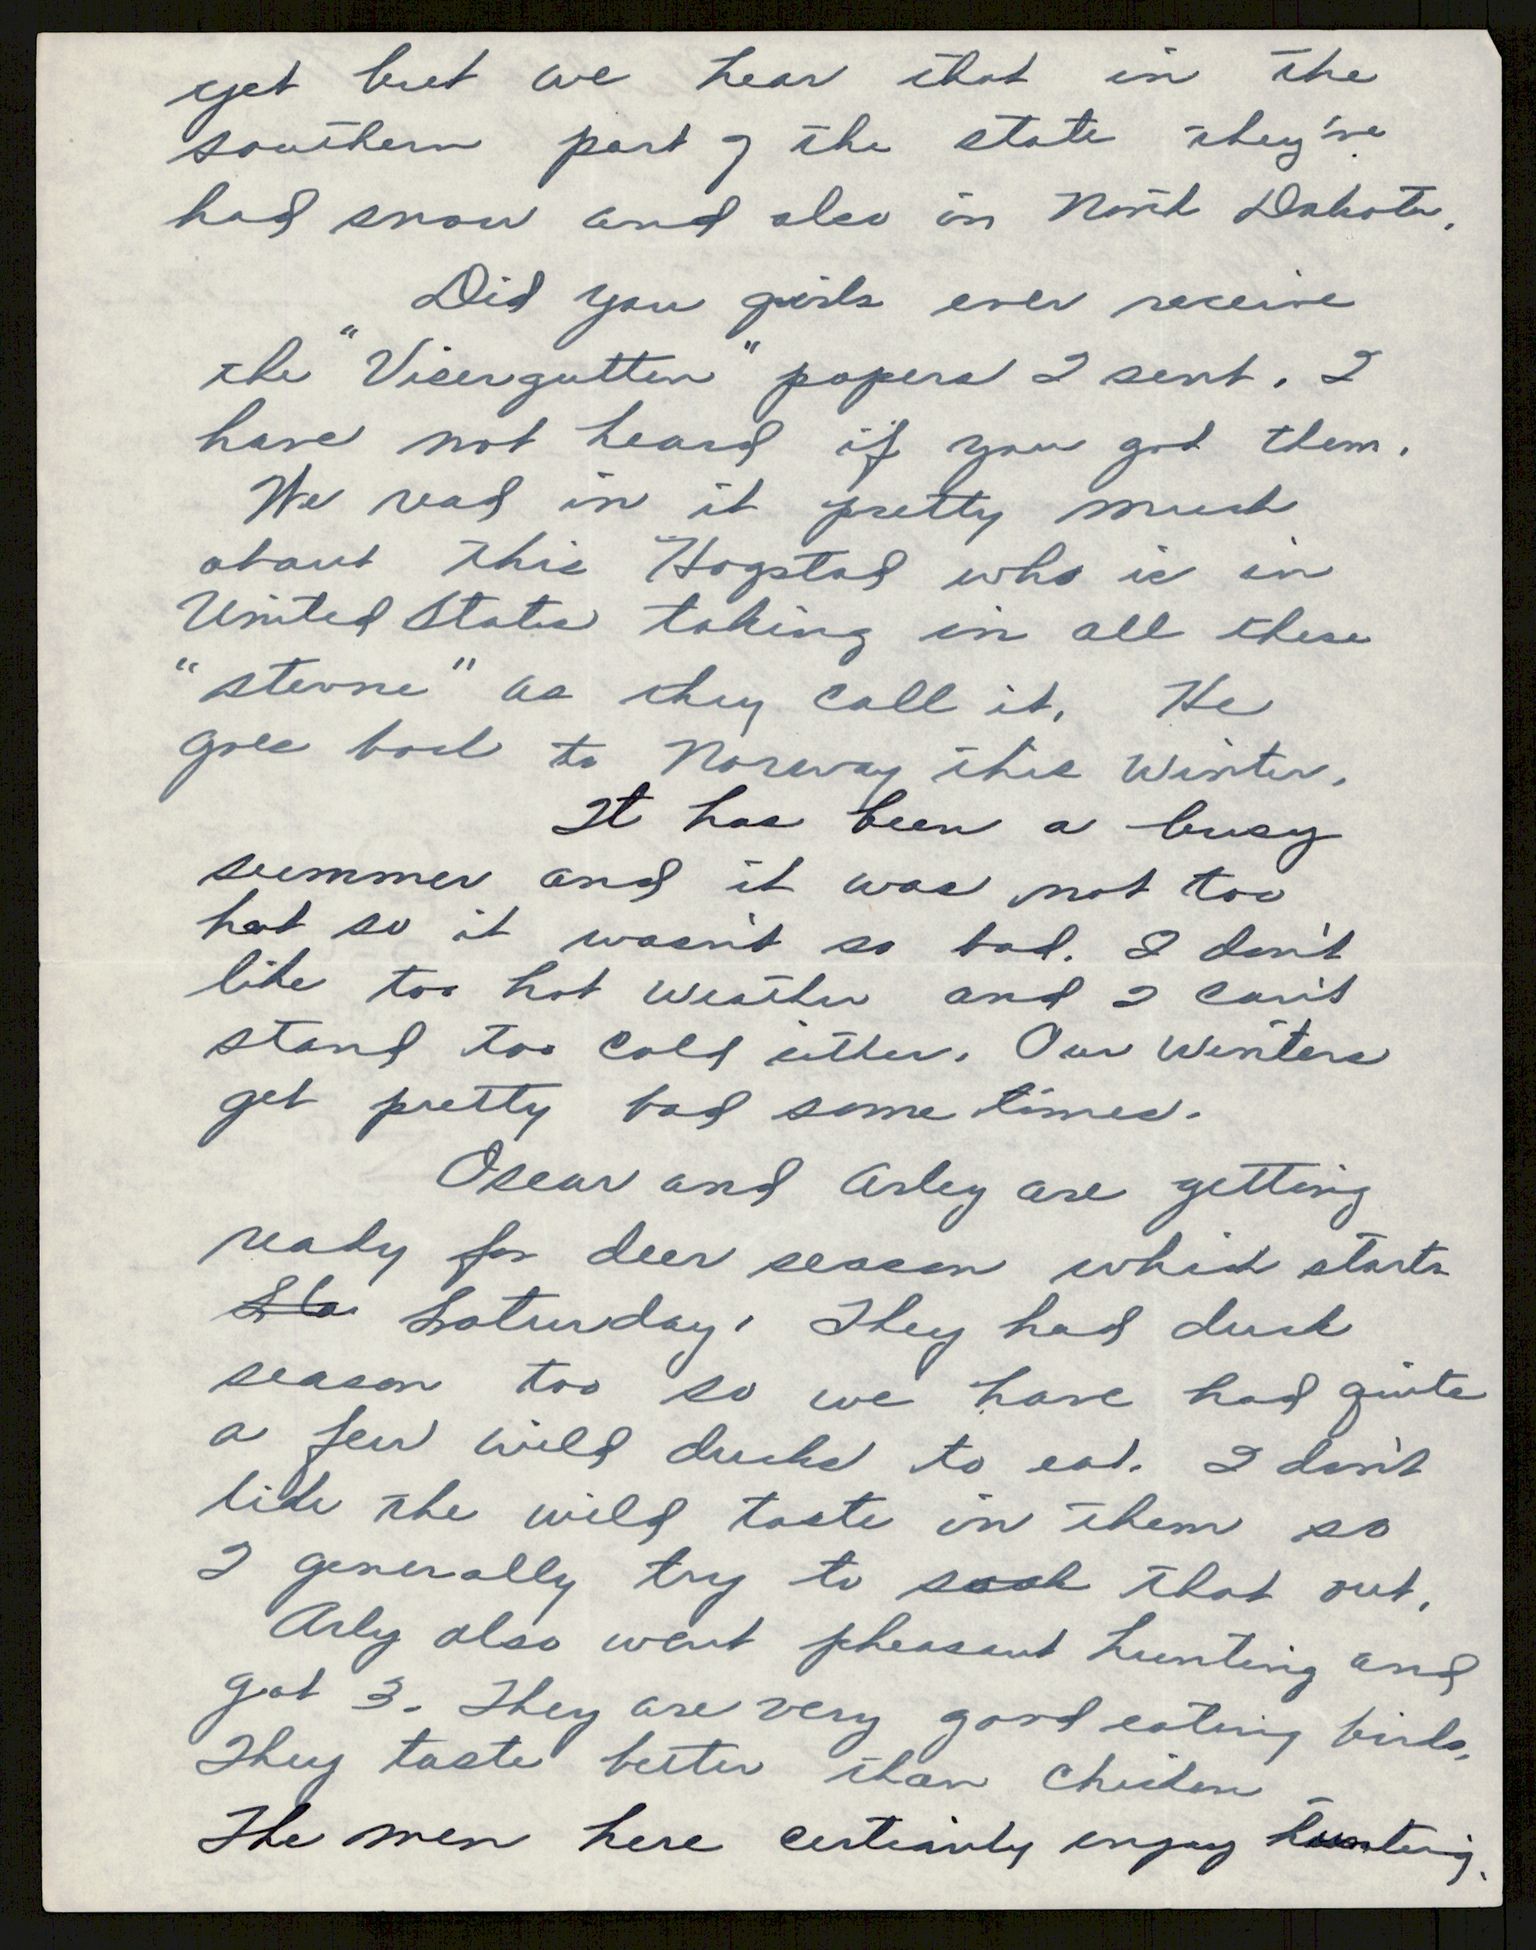 yet but we hear that in the
southern part of the state they've
had snow and also in North Dakota.
Did you girls ever receive
the "Visergutten" papers I sent. I
have not heard if you got them.
We read in it pretty much
about this Hogstad who is in
United States taking in all these
"stevne" as they call it. He
goes back to Norway this Winter.
It has been a busy
summer and it was not too
hot so it wasn't so bad. I don't
like too hot weather and I can't
stand too cold either. Our Winters
get pretty bad some times.
Oscar and Arley are getting
ready for deer season which starts
Saturday. They had duck
season too so we have had quite
a few wild ducks to eat. I don't
like the wild taste in them so
I generally try to soak that out.
Arly also went pheasant hunting and
got 3. They are very good eating birds.
They taste better than chicken
The men here certianly enjoy hunting.